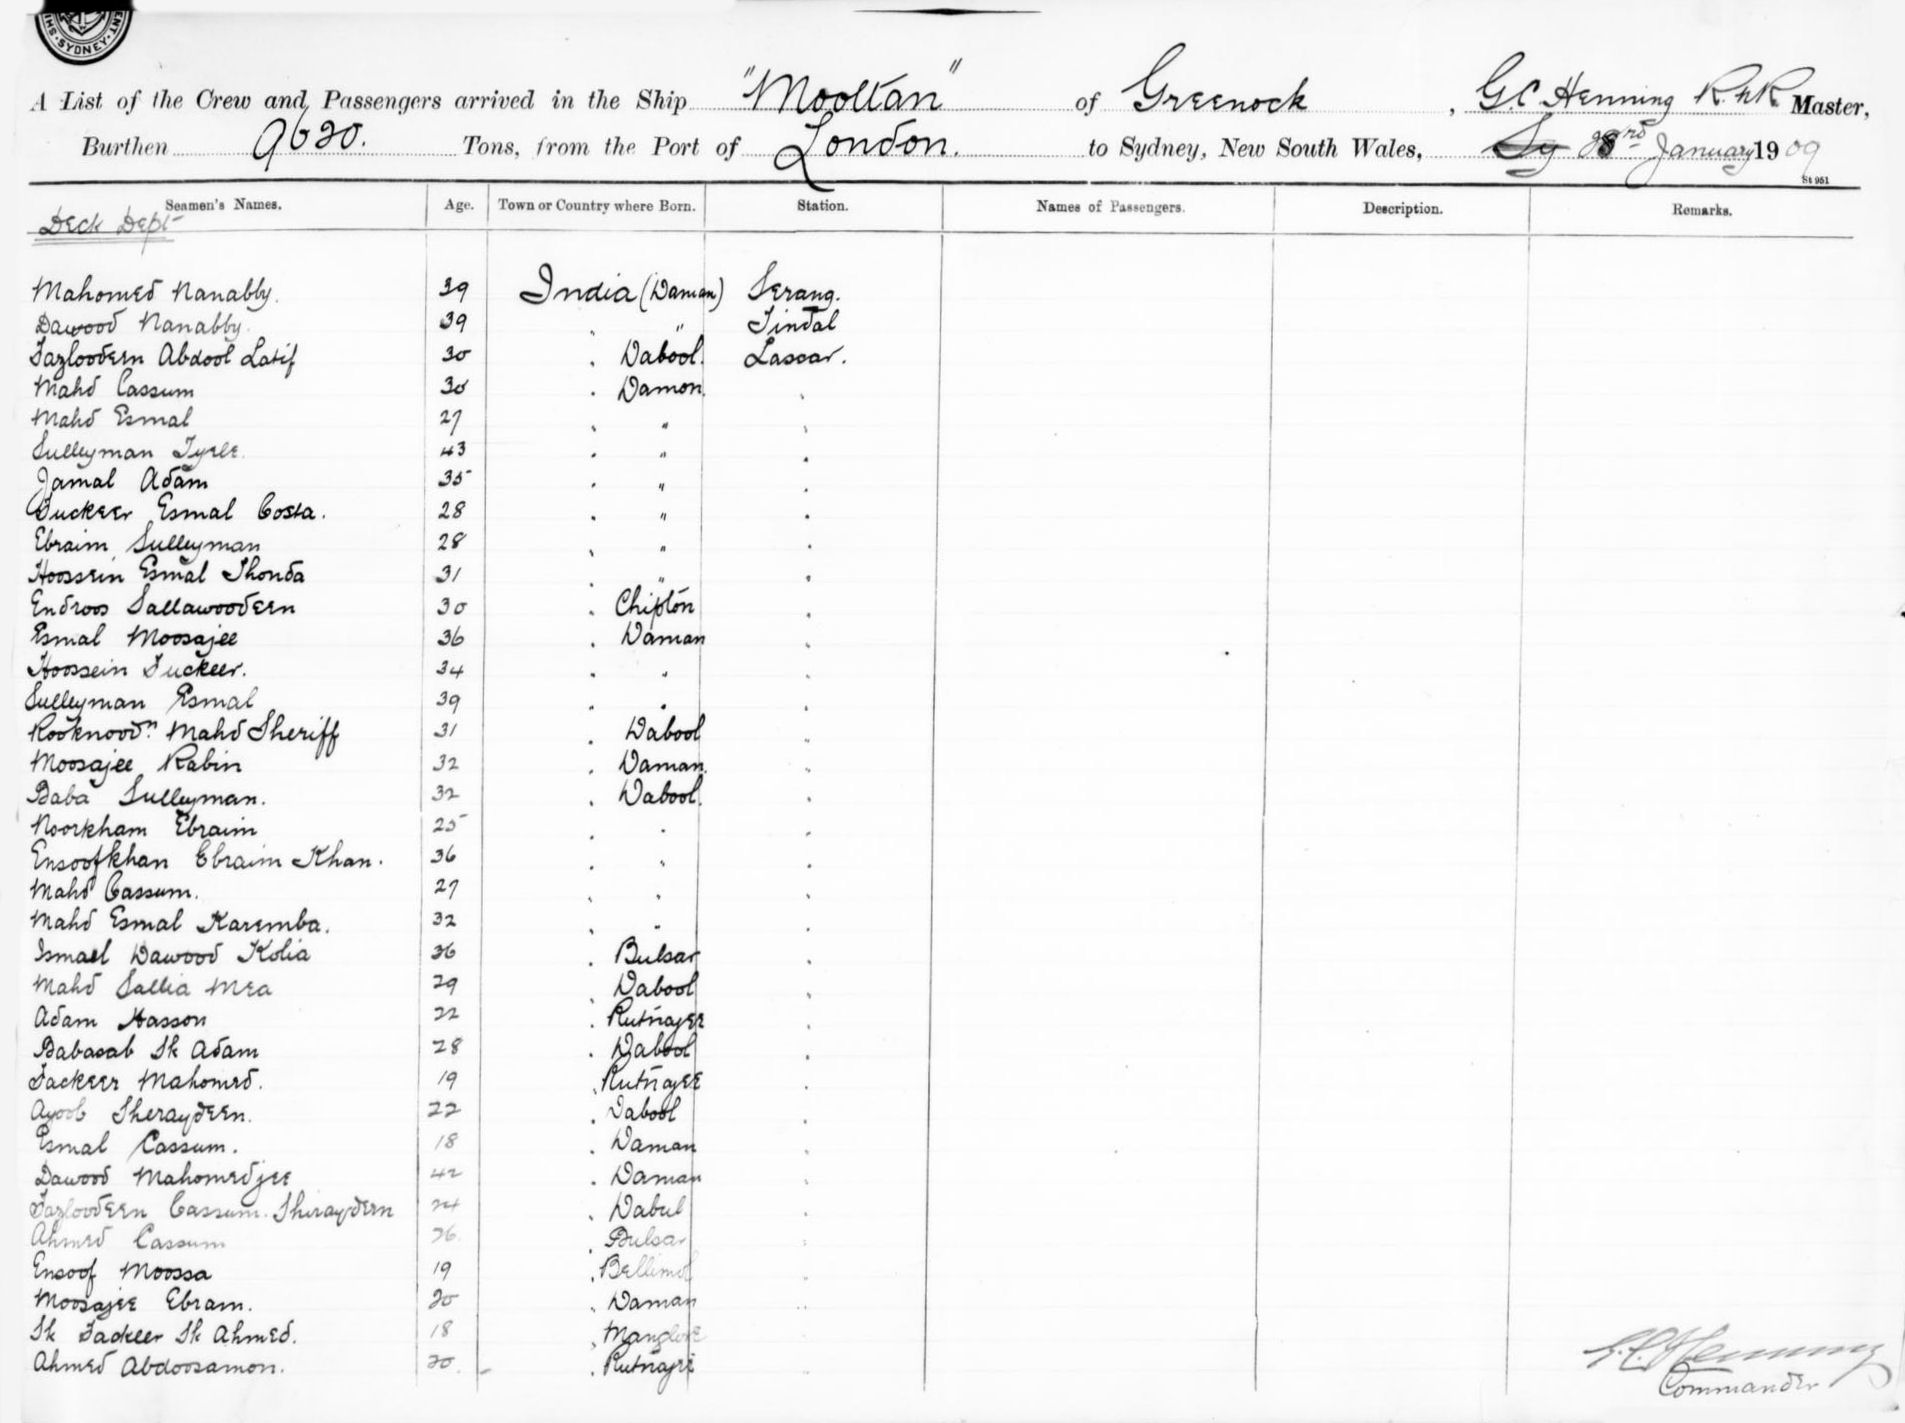 SYDNEY
A List of the Crew and Passengers arrived in the Ship "Mooltan" of Greenock, G.C. Henning R.N.R. Master,
Burthen 9620. Tons, from the Port of London. to Sydney, New South Wales, January 1909
St 951
Seamen's Names. Age. Town or Country where Born. Station. Names of Passengers. Description. Remarks.
Deck Dept
Mahomed Nanabby. 39 India (Daman) Serang.
Dawood Nanabby. 39 " " Tindal
Fazloodeen Abdool Latif 30 " Dabool. Lascar.
Mahd Cassum 30 " Damon. "
Mahd Esmal 27 " " "
Sulleyman 43 " " "
Jamal Adam 35 " " "
Fuckeer Esmal Costa. 28 " " "
Ebraim Sulleyman 28 " " "
Hoossein Esmal Thonda 31 " " "
Endroos Sallawoodeen 30 " Chiplon "
Esmal Moosajee 36 " Daman "
Hoossein Fuckeer. 34 " " "
Sulleyman Esmal 39 " " "
Rooknoodn. Mahd Sheriff 31 " Dabool "
Moosajee Rabin 32 " Daman. "
Baba Sulleyman. 32 " Dabool. "
Noorkham Ebraim 25 " " "
Ensoofkhan Ebraim Khan. 36 " " "
Mahd Cassum. 27 " " "
Mahd Esmal Karemba. 32 " " "
Ismael Dawood Kolia 36 " Bulsar "
Mahd Sallia Mea 29 " Dabool "
Adam Hasson 22 " Rutnagee "
Babasab Sk Adam 28 " Dabool "
Fackeer Mahomed. 19 " Rutnagee "
Ayoob Sheraydeen. 22 " Dabool "
Esmal Cassum. 18 " Daman "
Dawood Mahomedjee 42 " Daman "
Fazloodeen Cassum. Shiraydeen 24 " Dabul "
Ahmed Cassum 26. " Bulsar "
Ensoof Moossa 19 " "
Moosajee Ebram. 20 " Daman "
Sk Fackeer Sk Ahmed. 18 " Manglore "
Ahmed Abdoosamon. 20. " Rutnagri "
G.C. Henning
Commander